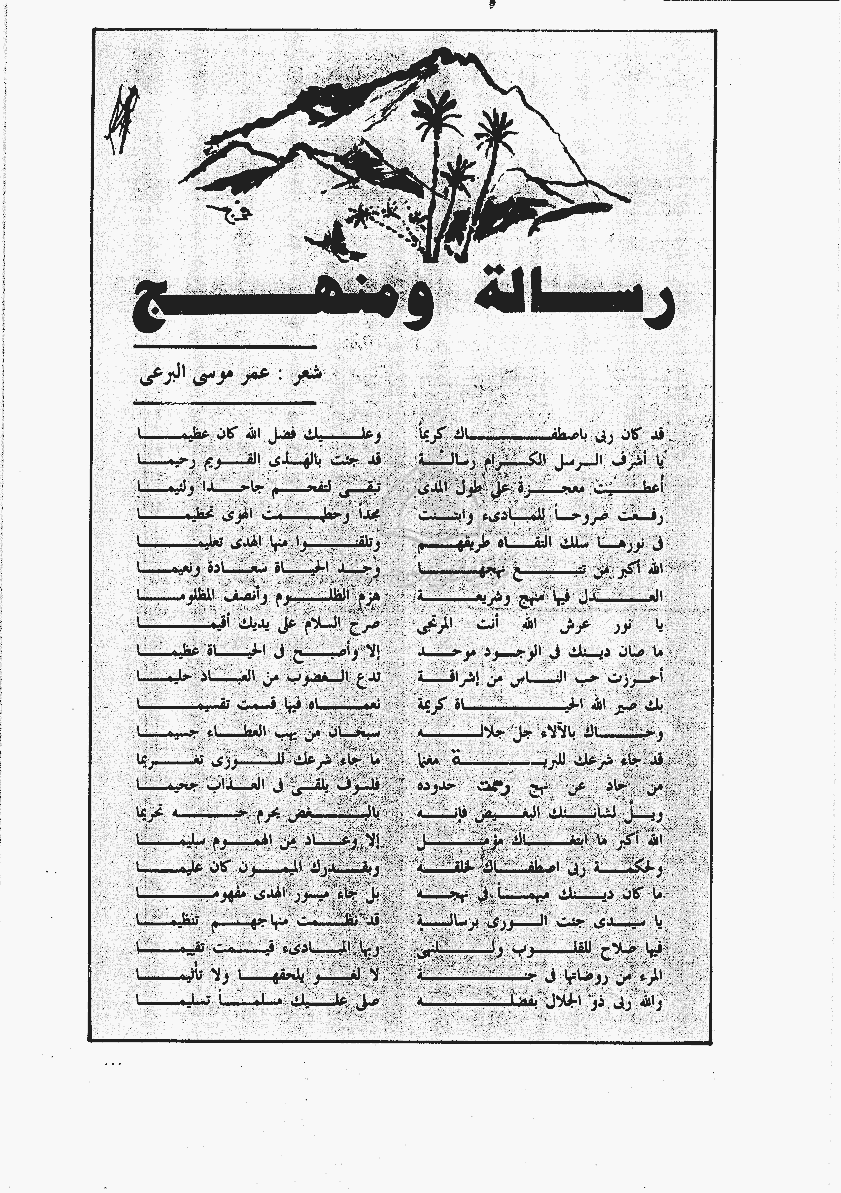 رسالة ومنهج
شعر : عمر موسى البرعى
قد كان ربى باصطفاك كريماً وعليك فضل الله كان عظيما
يا أشرف الرسل الكرام رسالة قد جئت بالهدى القويم رحيما
أعطيت معجزة على طول المدى تبقى لتفحم جاحدا ولئيما
رفعت صروحاً للمبادىء وابتنت مجداً وحطمت الهوى تحطيما
فى نورها سلك التقاه طريقهم وتلقنوا منها الهدى تعليما
الله أكبر من تتبع نهجها وجد الحياة سعادة ونعيما
العدل فيها منهج وشريعة هزم الظلوم وأنصف المظلوما
يا نور عرش الله أنت المرتجى صرح السلام على يديك أقيما
ما صان دينك فى الوجود موحد إلا وأصبح فى الحياة عظيما
أحرزت حب الناس من إشراقة تدع الغضوب من العباد حليما
بك صير الله الحياة كريمة نعماه فيها قسمت تقسيما
وحباك بالآلاء جل جلاله سبحان من يهب العطاء جسيما
قد جاء شرعك للبرية مغنما ما جاء شرعك للورى تغريما
من حاد عن نهج رسمت حدوده فلسوف يلقى فى العذاب جحيما
ويل لشانئك البغيض فإنه بالبغض يحرم حبه تحريما
الله أكبر ما ابتغاك مؤمل إلا وعاد من الهموم سليما
ولحكمة ربى اصطفاك لخلقه وبقدرك الميمون كان عليما
ما كان دينك مبهماً فى نهجه بل جاء ميسور الهدى مفهوما
يا سيدى جئت الورى برسالة قد نظمت منهاجهم تنظيما
فيها صلاح للقلوب وبها المبادىء قيمت تقييما
المرء من روضاتها فى جنة لا لغو يلحقها ولا تأثيما
والله ربى ذو الجلال بفضله صلى عليك مسلماً تسليما